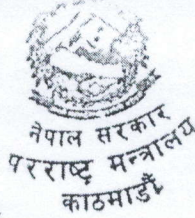 नेपाल सरकार
परराष्ट्र मन्त्रालय
काठमाडौं